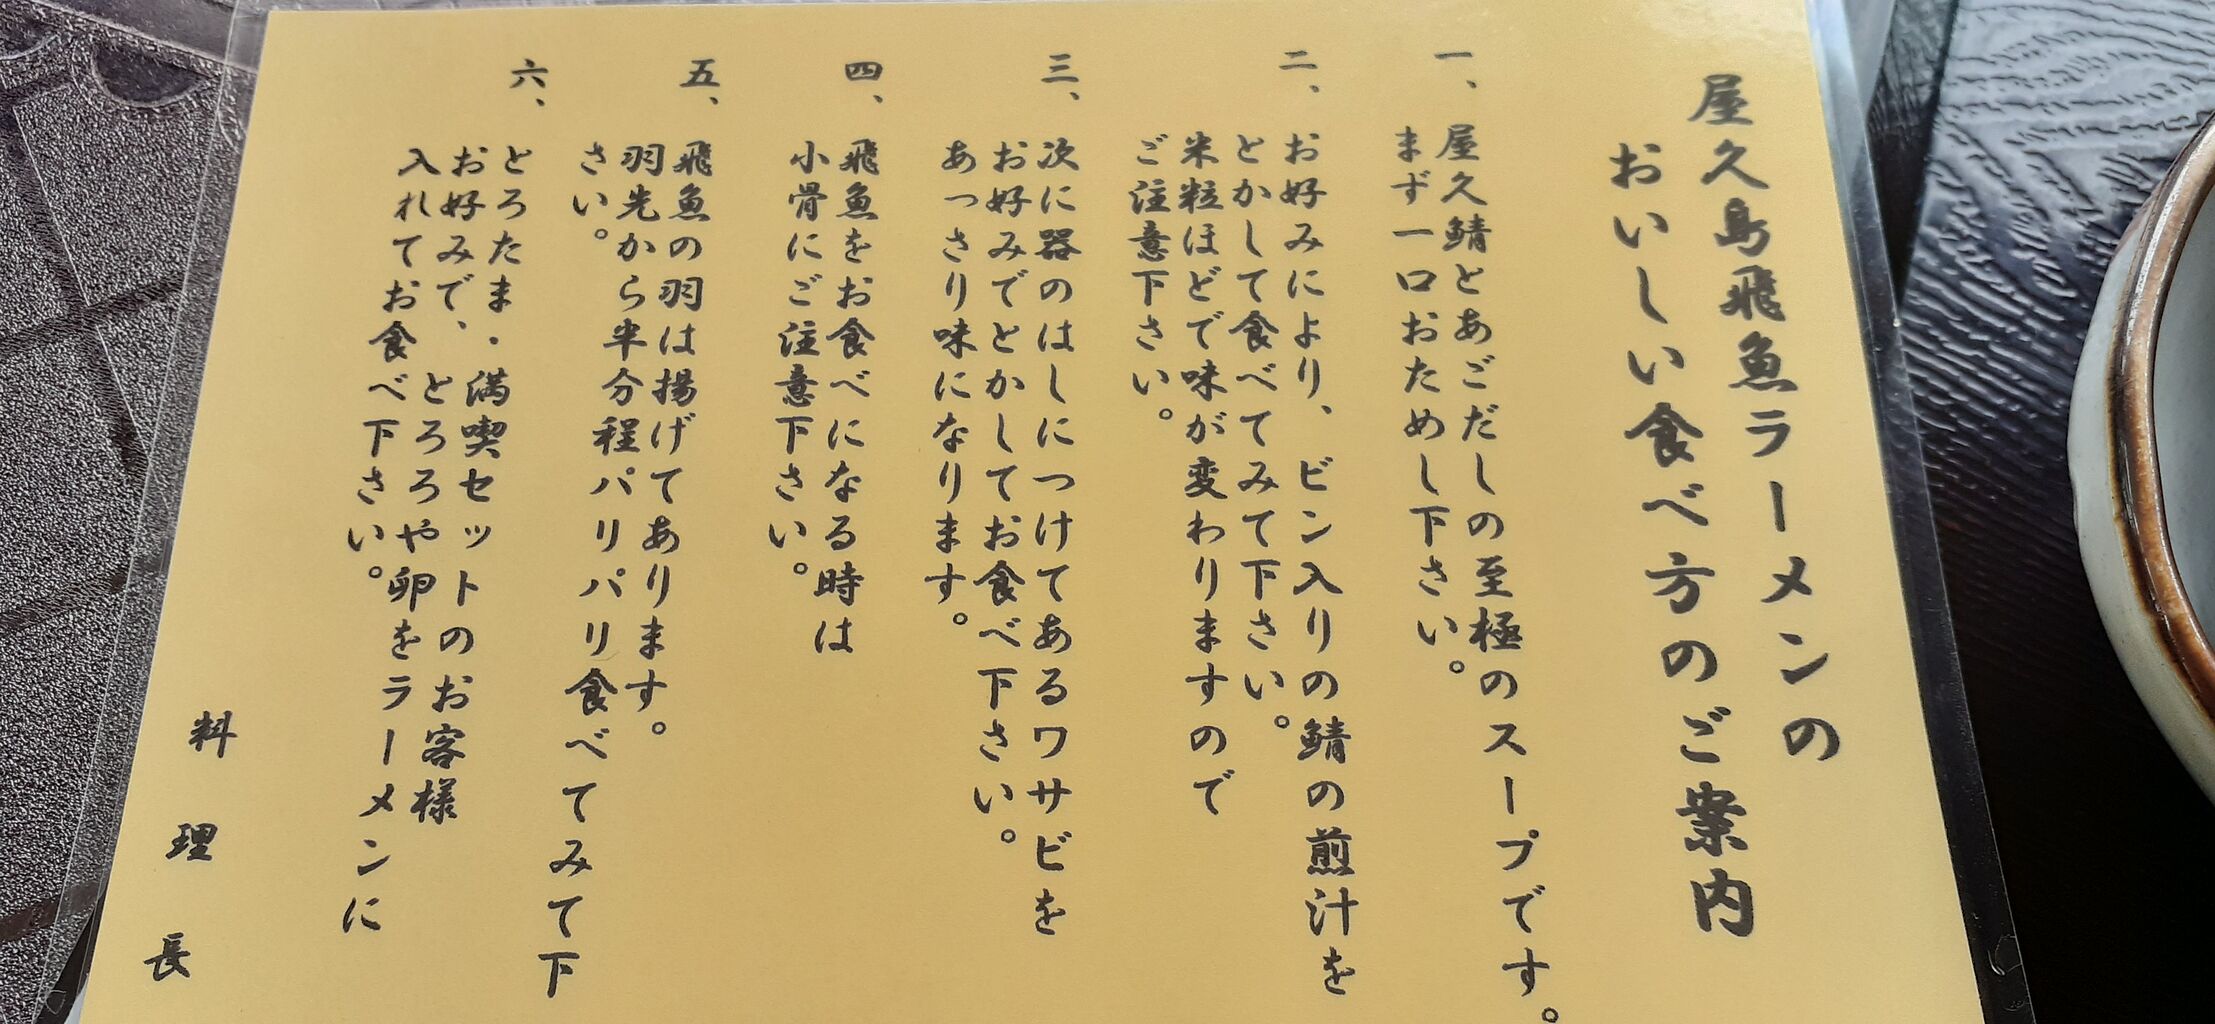 屋久島飛魚ラーメンの
おいしい食べ方のご案内
一、屋久鯖とあごだしの至極のスープです。
まず一口おためし下さい。
二、お好みにより、ビン入りの鯖の煎汁を
とかして食べてみて下さい。
米粒ほどで味が変わりますので
ご注意下さい。
三、次に器のはしにつけてあるワサビを
お好みでとかしてお食べ下さい。
あっさり味になります。
四、飛魚をお食べになる時は
小骨にご注意下さい。
五、飛魚の羽は揚げてあります。
羽先から半分程パリパリ食べてみて下
さい。
六、とろたま・満喫セットのお客様
お好みで、とろろや卵をラーメンに
入れてお食べ下さい。
料理長